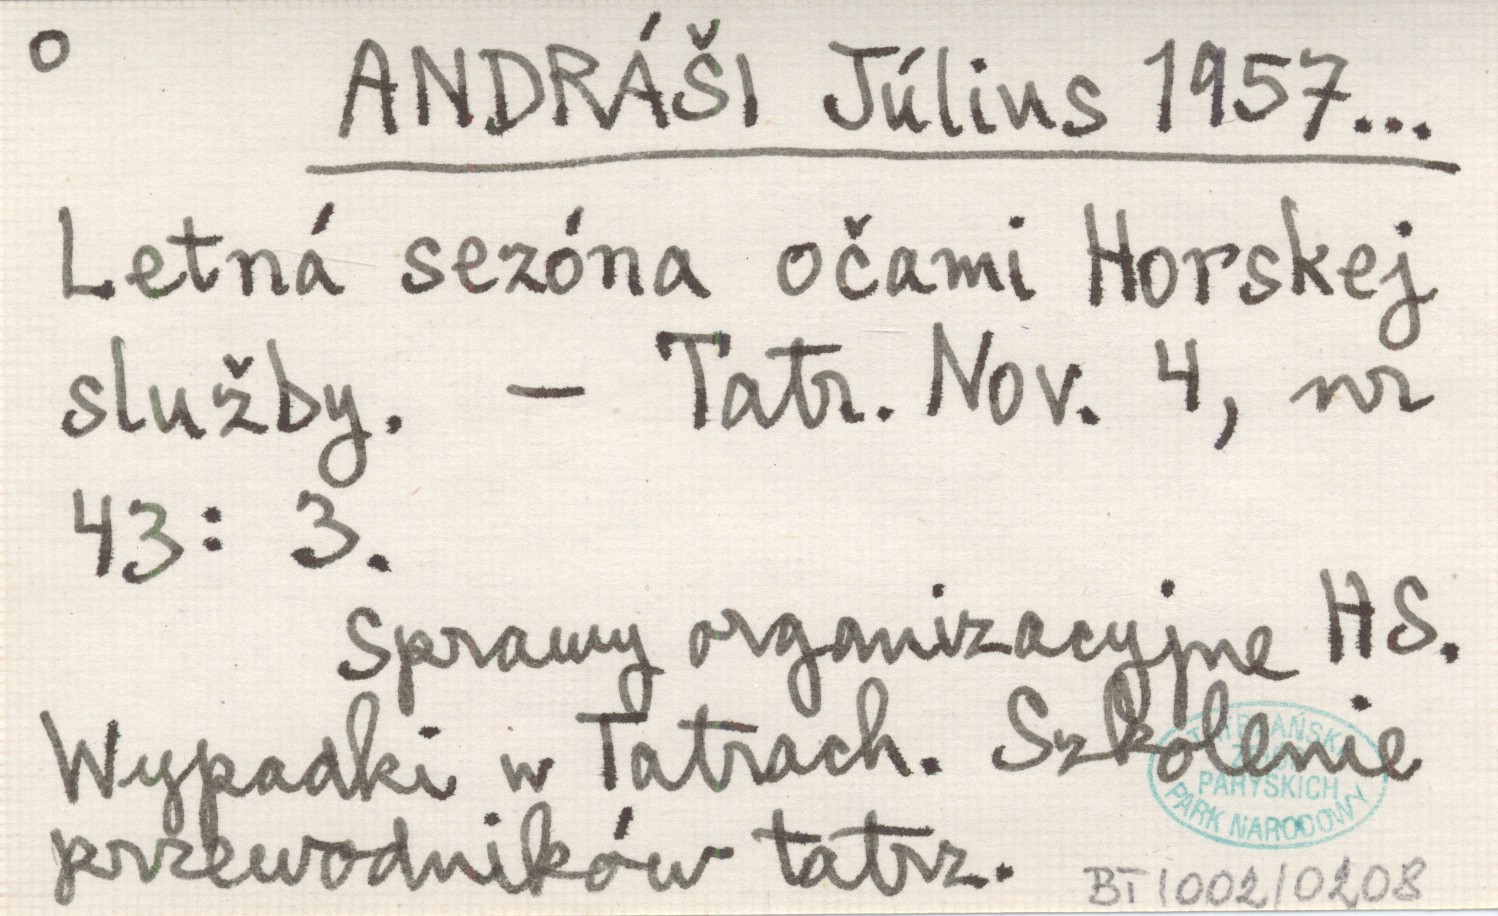 o
ANDRÁŠI Július 1957...
Letná sezóna očami Horskej
služby. – Tatr. Nov. 4, nr
43: 3.
Sprawy organizacyjne HS.
Wypadki w Tatrach. Szkolenie
przewodników tatrz.
PARYSKICH
PARK NARODOWY
BT 1002/0208